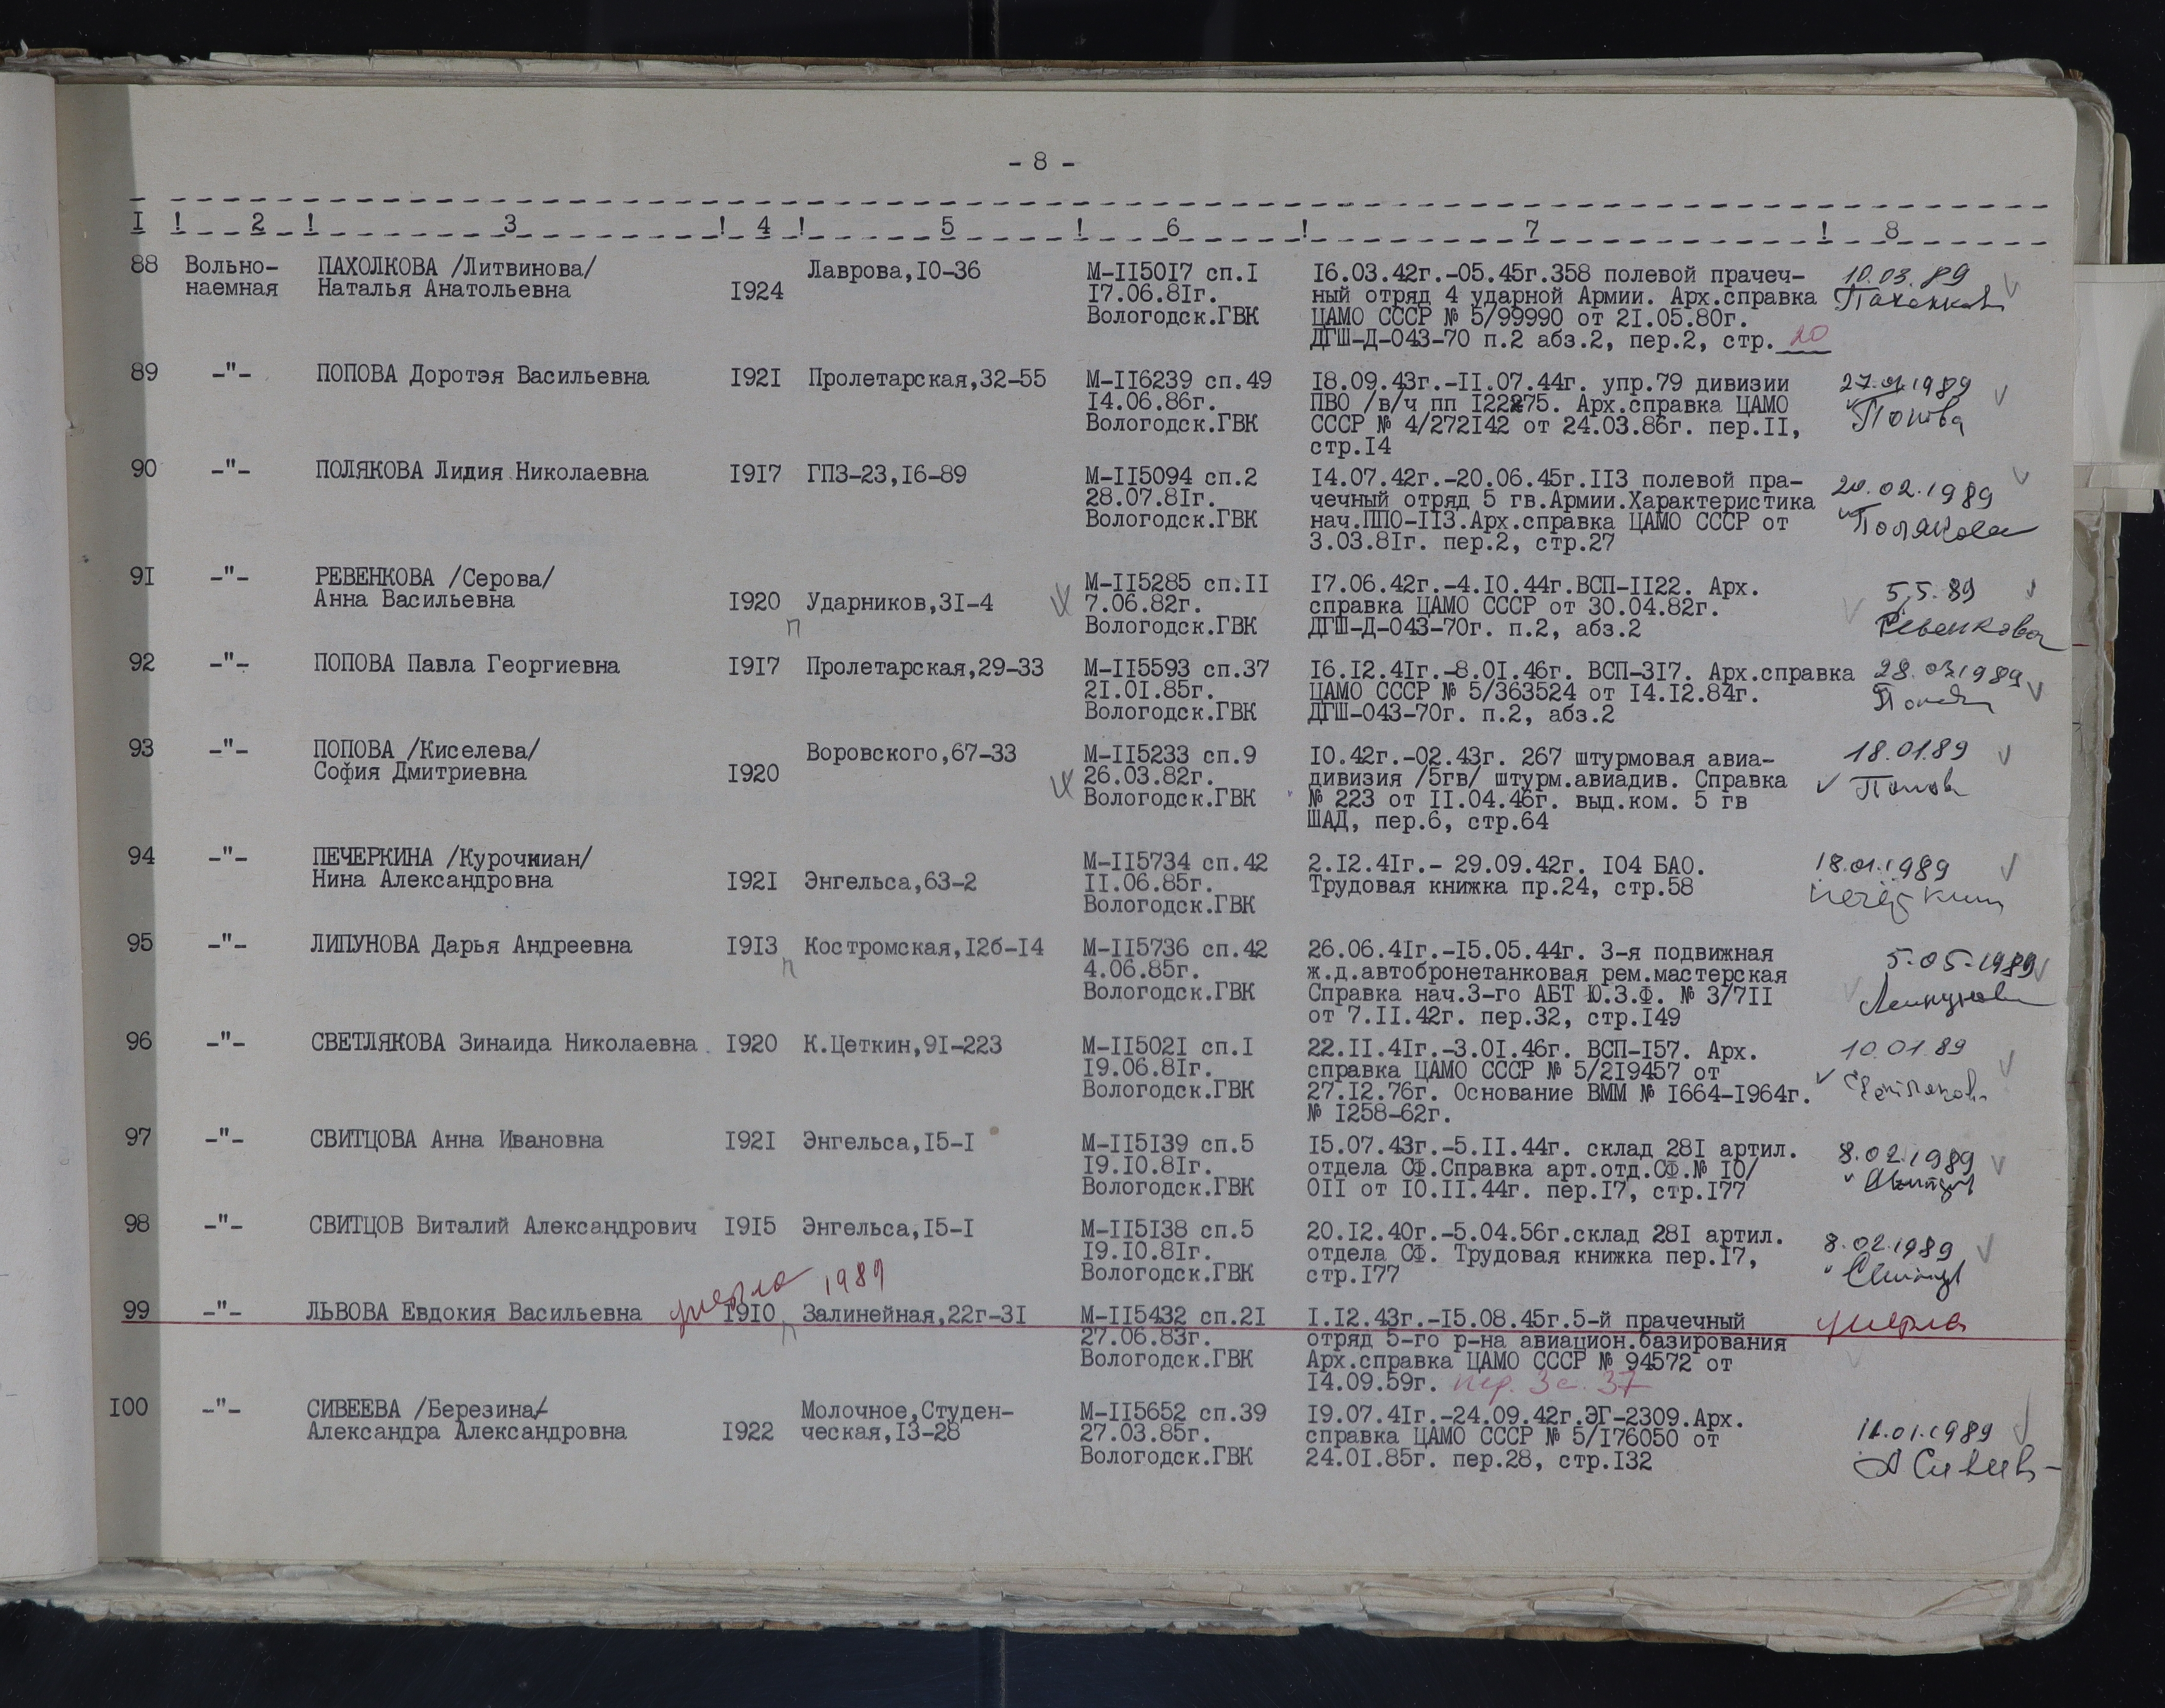 - 8 -
I ! 2 ! 3 ! 4 ! 5 ! 6 ! 7 ! 8
88 Вольно- ПАХОЛКОВА /Литвинова/ Лаврова,10-36 М-II5017 сп.I 16.03.42г.-05.45г.358 полевой прачеч- 10.03.89
наемная Наталья Анатольевна 1924 17.06.81г. ный отряд 4 ударной Армии. Арх.справка
Вологодск.ГВК ЦАМО СССР № 5/99990 от 21.05.80г.
ДГШ-Д-043-70 п.2 абз.2, пер.2, стр. 20
89 -"- ПОПОВА Доротэя Васильевна 1921 Пролетарская,32-55 М-II6239 сп.49 18.09.43г.-II.07.44г. упр.79 дивизии
14.06.86г. ПВО /в/ч пп 122275. Арх.справка ЦАМО Попова
Вологодск.ГВК СССР № 4/272142 от 24.03.86г. пер.II,
стр.14
90 -"- ПОЛЯКОВА Лидия Николаевна 1917 ГПЗ-23,16-89 М-II5094 сп.2 14.07.42г.-20.06.45г.II3 полевой пра- 20.02.1989
28.07.81г. чечный отряд 5 гв.Армии.Характеристика
Вологодск.ГВК нач.ППО-II3.Арх.справка ЦАМО СССР от Полякова
3.03.81г. пер.2, стр.27
91 -"- РЕВЕНКОВА /Серова/ М-II5285 сп.II 17.06.42г.-4.10.44г.ВСП-II22. Арх. 5.5.89
Анна Васильевна 1920 Ударников,31-4 7.06.82г. справка ЦАМО СССР от 30.04.82г.
п Вологодск.ГВК ДГШ-Д-043-70г. п.2, абз.2 Ревенкова
92 -"- ПОПОВА Павла Георгиевна 1917 Пролетарская,29-33 М-II5593 сп.37 16.12.41г.-8.01.46г. ВСП-317. Арх.справка 28.03.1989
21.01.85г. ЦАМО СССР № 5/363524 от 14.12.84г.
Вологодск.ГВК ДГШ-043-70г. п.2, абз.2
93 -"- ПОПОВА /Киселева/ Воровского,67-33 М-II5233 сп.9 10.42г.-02.43г. 267 штурмовая авиа- 18.01.89
София Дмитриевна 1920 26.03.82г. дивизия /5гв/ штурм.авиадив. Справка
Вологодск.ГВК № 223 от II.04.46г. выд.ком. 5 гв
ШАД, пер.6, стр.64
94 -"- ПЕЧЕРКИНА /Курочкиан/ М-II5734 сп.42 2.12.41г.- 29.09.42г. 104 БАО. 18.01.1989
Нина Александровна 1921 Энгельса,63-2 II.06.85г. Трудовая книжка пр.24, стр.58
Вологодск.ГВК
95 -"- ЛИПУНОВА Дарья Андреевна 1913 Костромская,12б-14 М-II5736 сп.42 26.06.41г.-15.05.44г. 3-я подвижная 5.05.1989
п 4.06.85г. ж.д.автобронетанковая рем.мастерская
Вологодск.ГВК Справка нач.3-го АБТ Ю.З.Ф. № 3/7II
от 7.II.42г. пер.32, стр.149
96 -"- СВЕТЛЯКОВА Зинаида Николаевна 1920 К.Цеткин,91-223 М-II5021 сп.I 22.II.41г.-3.01.46г. ВСП-157. Арх. 10.01.89
19.06.81г. справка ЦАМО СССР № 5/219457 от
Вологодск.ГВК 27.12.76г. Основание ВММ № 1664-1964г.
№ 1258-62г.
97 -"- СВИТЦОВА Анна Ивановна 1921 Энгельса,15-I М-II5139 сп.5 15.07.43г.-5.II.44г. склад 281 артил. 8.02.1989
19.10.81г. отдела СФ.Справка арт.отд.СФ.№ 10/
Вологодск.ГВК 0II от 10.II.44г. пер.17, стр.177
98 -"- СВИТЦОВ Виталий Александрович 1915 Энгельса,15-I М-II5138 сп.5 20.12.40г.-5.04.56г.склад 281 артил. 8.02.1989
19.10.81г. отдела СФ. Трудовая книжка пер.17,
Вологодск.ГВК стр.177
умерла 1989
99 -"- ЛЬВОВА Евдокия Васильевна 1910 Залинейная,22г-31 М-II5432 сп.21 I.12.43г.-15.08.45г.5-й прачечный умерла
п 27.06.83г. отряд 5-го р-на авиацион.базирования
Вологодск.ГВК Арх.справка ЦАМО СССР № 94572 от
14.09.59г. пер. 3 с. 37
100 -"- СИВЕЕВА /Березина/ Молочное,Студен- М-II5652 сп.39 19.07.41г.-24.09.42г.ЭГ-2309.Арх.
Александра Александровна 1922 ческая,13-28 27.03.85г. справка ЦАМО СССР № 5/176050 от
Вологодск.ГВК 24.01.85г. пер.28, стр.132